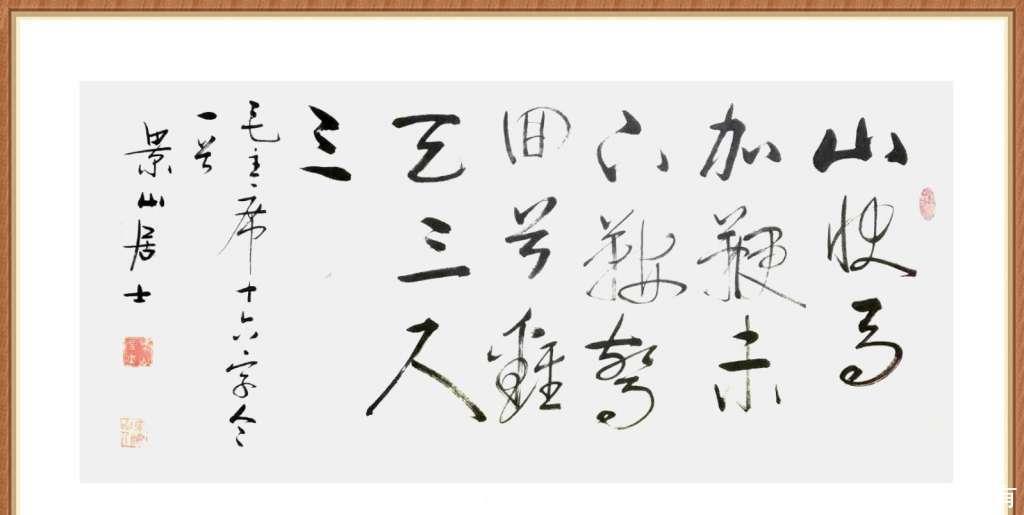 山快马
加鞭未
下鞍驚
回首離
天三尺
三
毛主席十六字令
一首
景山居士